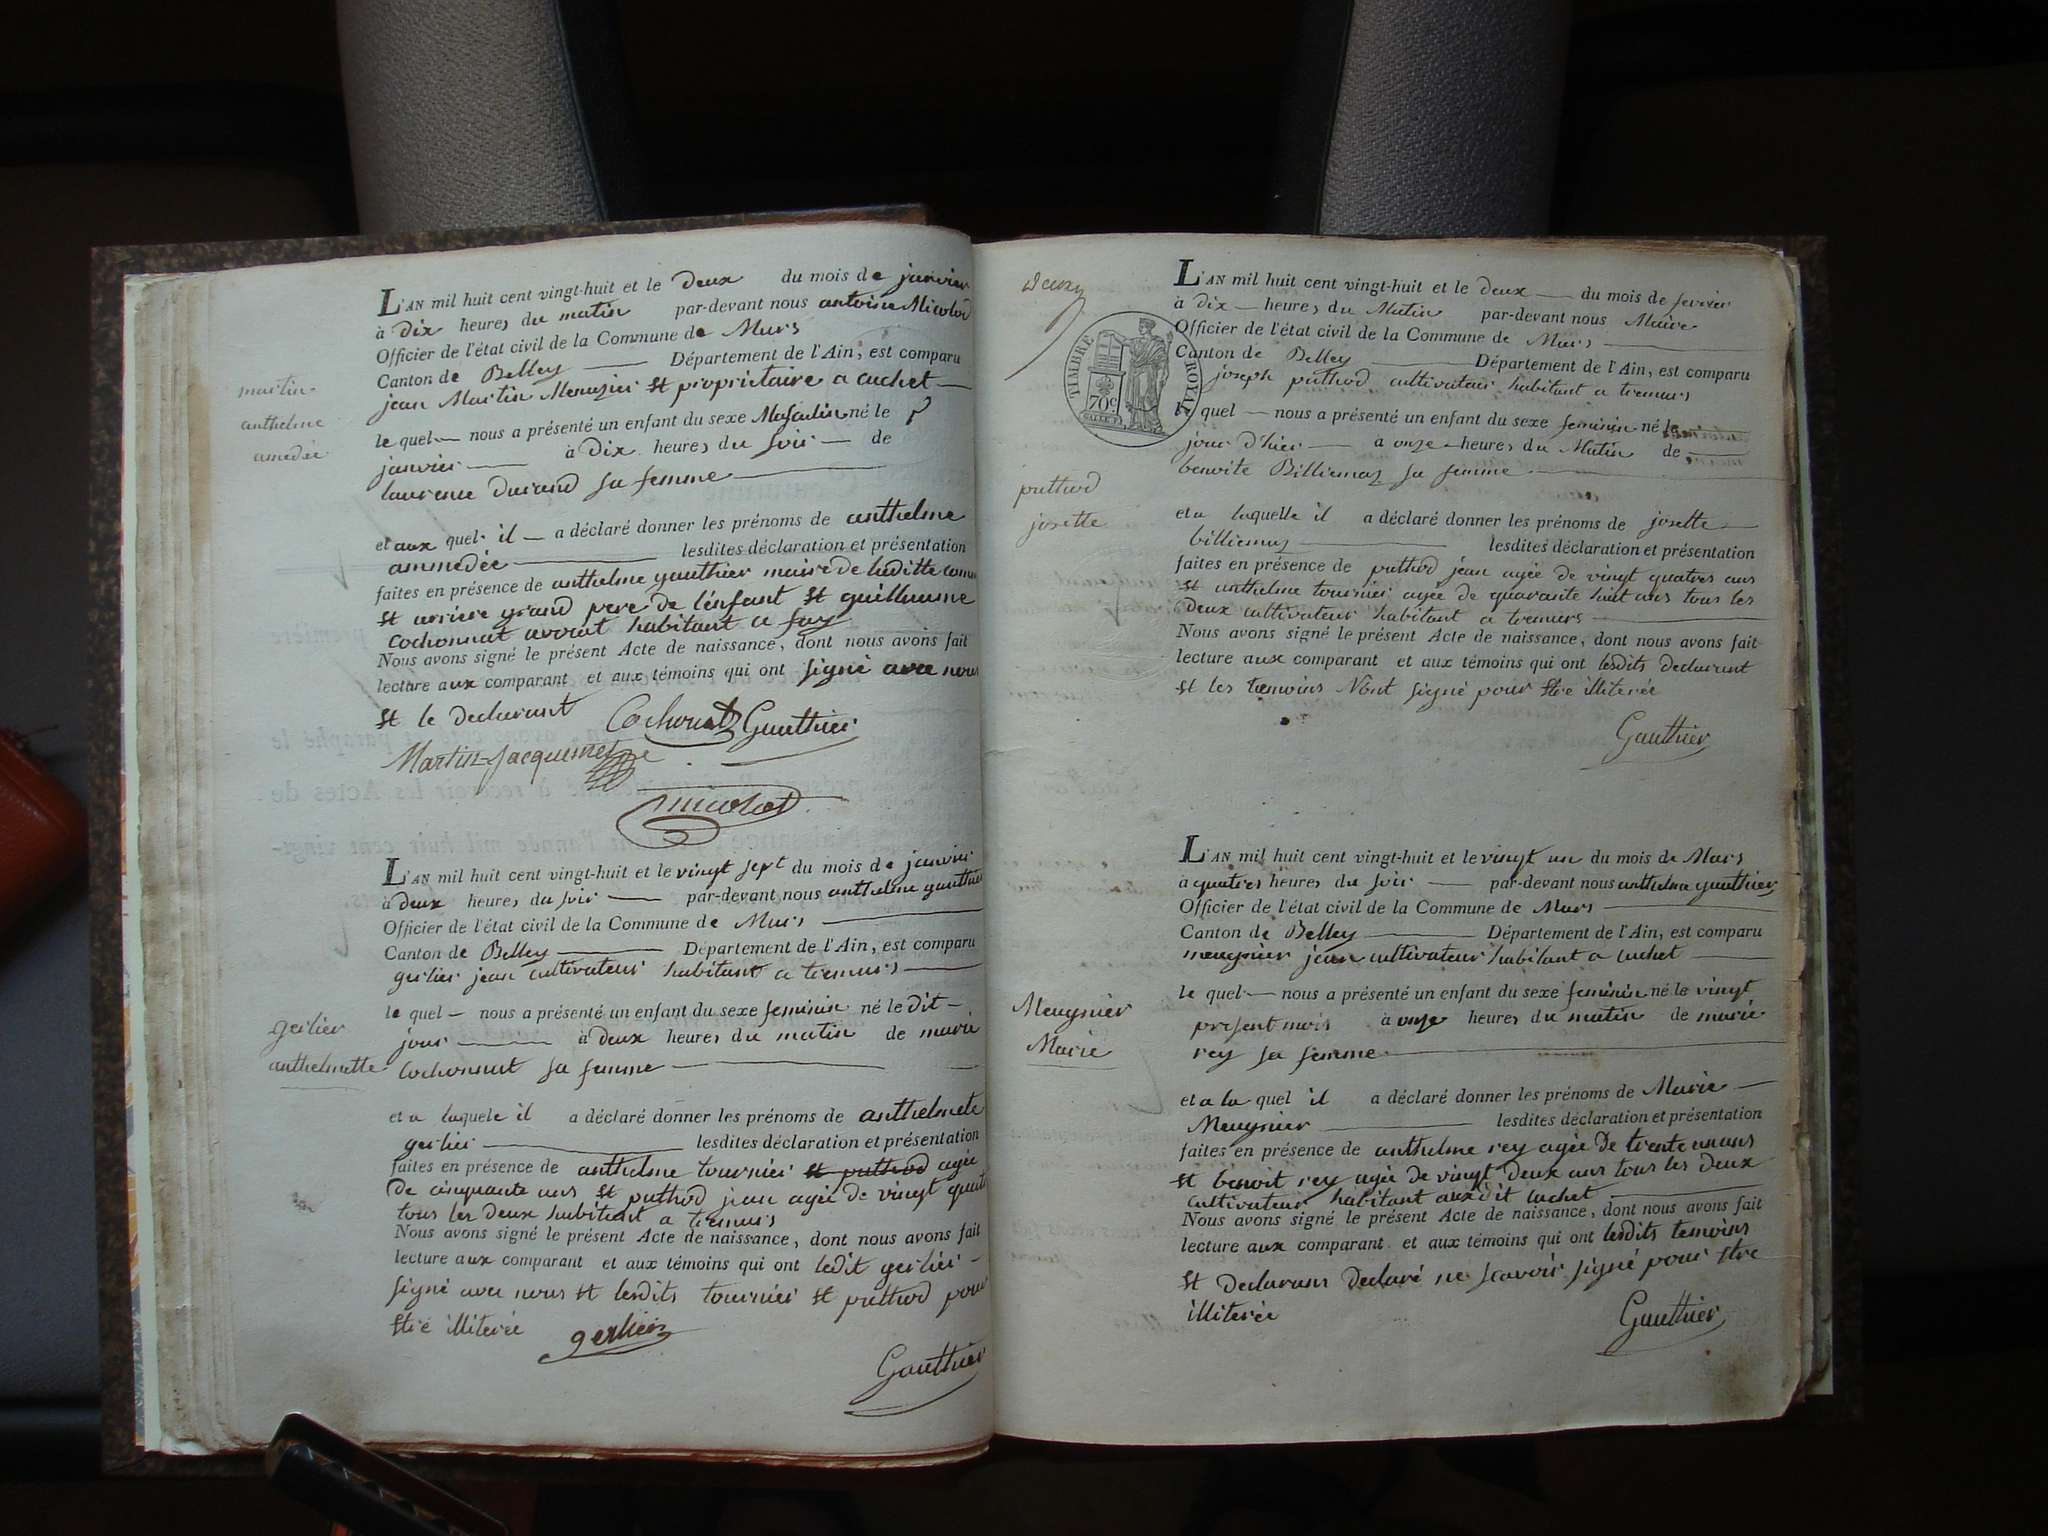 martin
anthelme
amédée
L'AN mil huit cent vingt-huit et le Deux du mois de janvier
à Dix heures du matin par-devant nous antoine Nicolod
Officier de l'état civil de la Commune de Murs
Canton de Belley Département de l'Ain, est comparu
jean Martin st propriétaire a cuchet
le quel nous a présenté un enfant du sexe Masculin né le
janvier à Dix heures du soir de
laurence Durand sa femme
et aux quel il a déclaré donner les prénoms de anthelme
ammedée lesdites déclaration et présentation
faites en présence de anthelme gauthier maire de laditte
st arriere grand pere de l'enfant st guilluume
Cochonnat avouit habitant a fay
Nous avons signé le présent Acte de naissance, dont nous avons fait
lecture aux comparant et aux témoins qui ont signé avec nous
st le declarant Cochonat Gauthier
Martin-Jacquemet
nicolod
gerlier
anthelmette
L'AN mil huit cent vingt-huit et le vingt sept du mois de janvier
à deux heures du soir par-devant nous anthelme gauthier
Officier de l'état civil de la Commune de Murs
Canton de Belley Département de l'Ain, est comparu
gerlier jean cultivateur habitant a tremurs
le quel nous a présenté un enfant du sexe feminin né le dit
jour à deux heures du matin de marie
Cochonnat sa femme
et a laquele il a déclaré donner les prénoms de anthelmete
gerlier lesdites déclaration et présentation
faites en présence de anthelme tournier st puthod agée
de cinquante ans st puthod jean agée de vingt quatr
tous les deux habitant a tremurs
Nous avons signé le présent Acte de naissance, dont nous avons fait
lecture aux comparant et aux témoins qui ont ledit gerlier
signé avec nous st lesdits tournier st puthod pour
stre illiterée gerlier
Gauthier
TIMBRE ROYAL
70c
puthod
josette
L'AN mil huit cent vingt-huit et le deux du mois de fevrier
à dix heures du Matin par-devant nous Maire
Officier de l'état civil de la Commune de Murs
Canton de Belley Département de l'Ain, est comparu
joseph puthod cultivateur habitant a tremurs
le quel nous a présenté un enfant du sexe feminin né le
jour d'hier a onze heures du Matin de
benoite Billiemaz sa femme
et a laquelle il a déclaré donner les prénoms de josette
billiemaz lesdites déclaration et présentation
faites en présence de puthod jean agée de vingt quatres ans
st anthelme tournier agée de quarante huit ans tous les
deux cultivateur habitant a tremurs
Nous avons signé le présent Acte de naissance, dont nous avons fait
lecture aux comparant et aux témoins qui ont lesdits declarant
st les temoins N'ont signé pour stre illiterée
Gauthier
Meugnier
Marie
L'AN mil huit cent vingt-huit et le vingt un du mois de Mars
à quatres heures du soir par-devant nous anthelme gauthier
Officier de l'état civil de la Commune de Murs
Canton de Belley Département de l'Ain, est comparu
meugnier jean cultivateur habitant a cuchet
le quel nous a présenté un enfant du sexe feminin né le vingt
present mois à onze heures du matin de marie
rey sa femme
et a la quel il a déclaré donner les prénoms de Marie
Meugnier lesdites déclaration et présentation
faites en présence de anthelme rey agée de trente un ans
st benoit rey agée de vingt deux ans tous les deux
cultivateur habitant audit cuchet
Nous avons signé le présent Acte de naissance, dont nous avons fait
lecture aux comparant et aux témoins qui ont lesdits temoins
st declarans declaré ne scavoir signé pour stre
illiterée
Gauthier